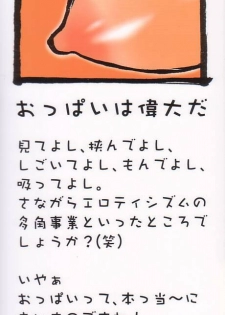 おっぱいは偉大だ
見てよし、挟んでよし、
しごいてよし、もんでよし、
吸ってよし。
さながらエロティシズムの
多角事業といったところで
しょうか？(笑)
いやぁ
おっぱいって、本っ当〜に